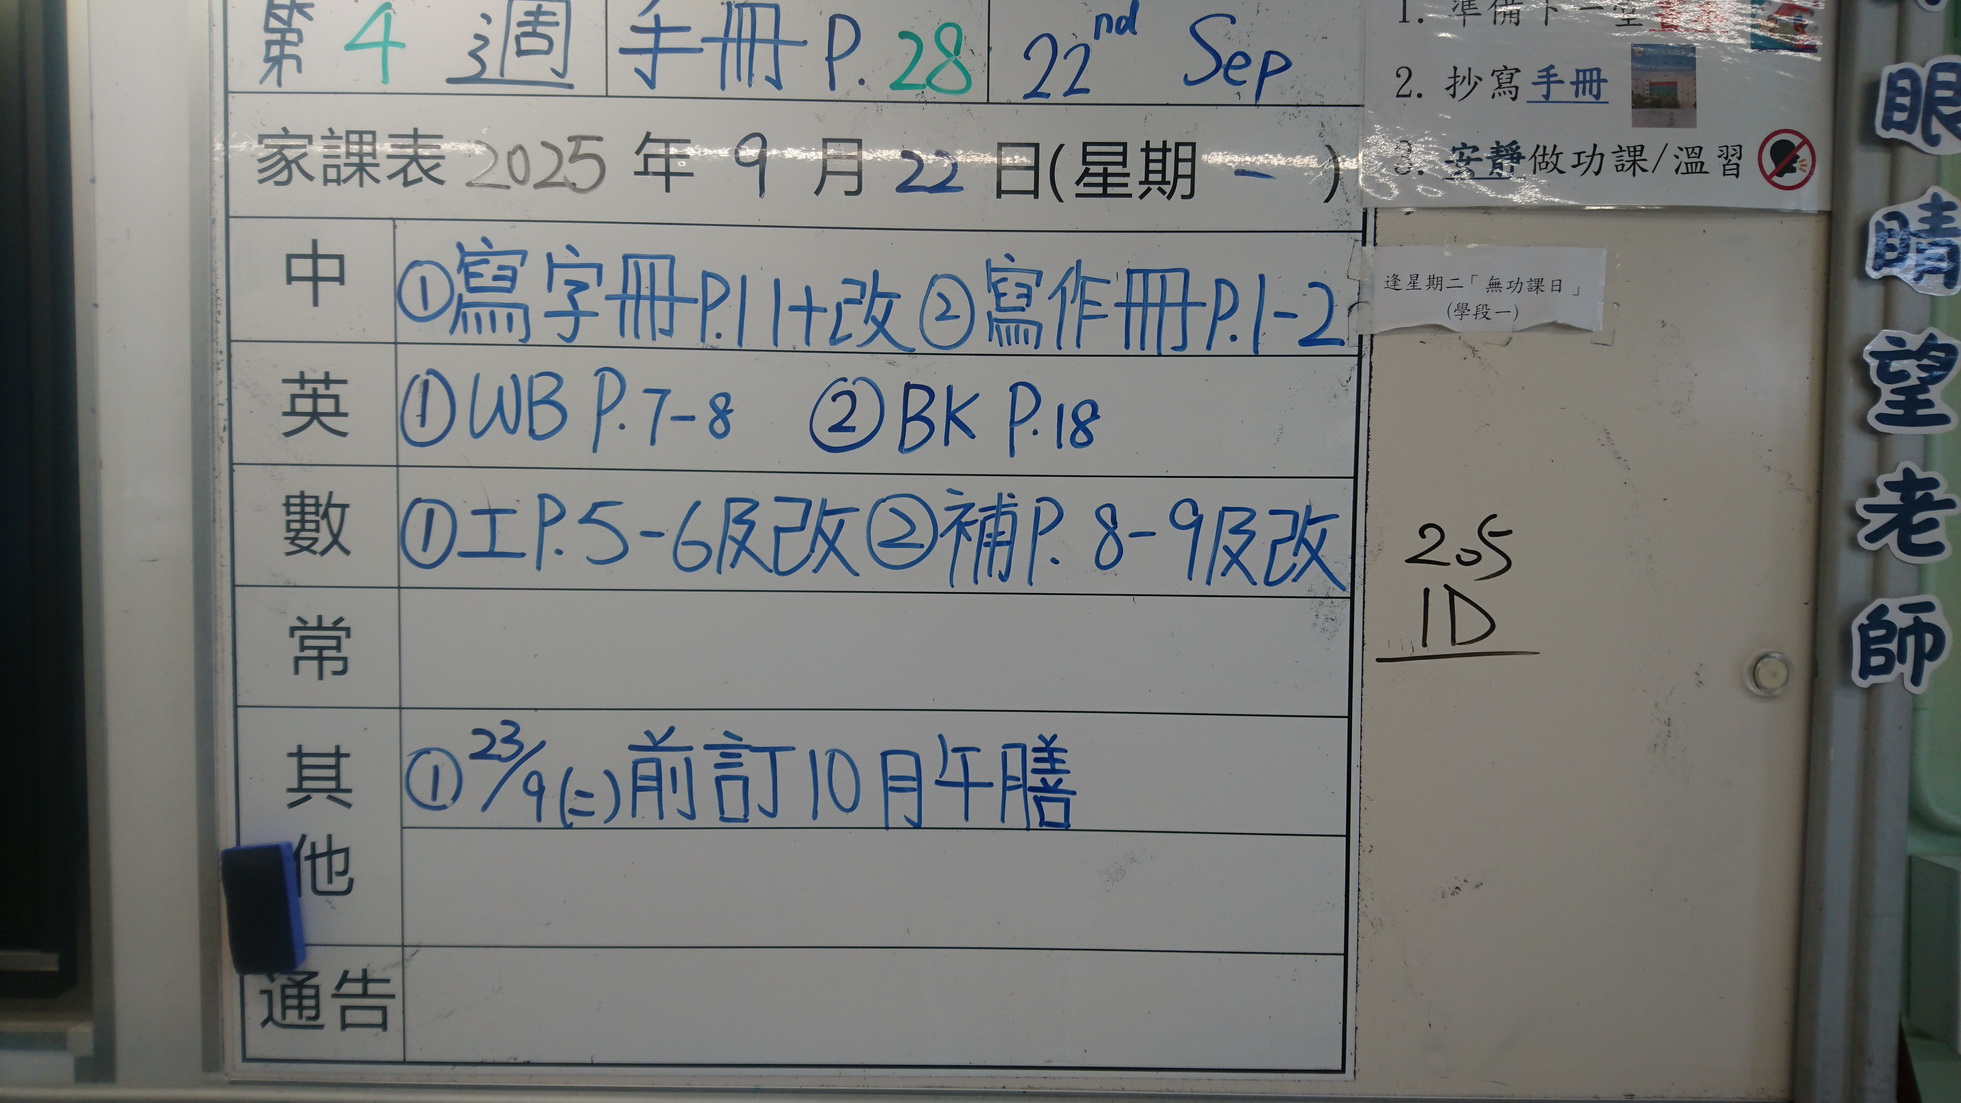 第 4 週 手冊 P. 28 22nd Sep
家課表 2025 年 9 月 22 日(星期 一 )
中 ①寫字冊P.11+改 ②寫作冊P.1-2
英 ①WB P.7-8 ②BK P.18
數 ①工P.5-6及改②補P.8-9及改
常
其他 ①23/9(二)前訂10月午膳
通告
1. 準備下一堂
2. 抄寫手冊
3. 安靜做功課/溫習
逢星期二「無功課日」
(學段一)
205
1D
眼睛望老師